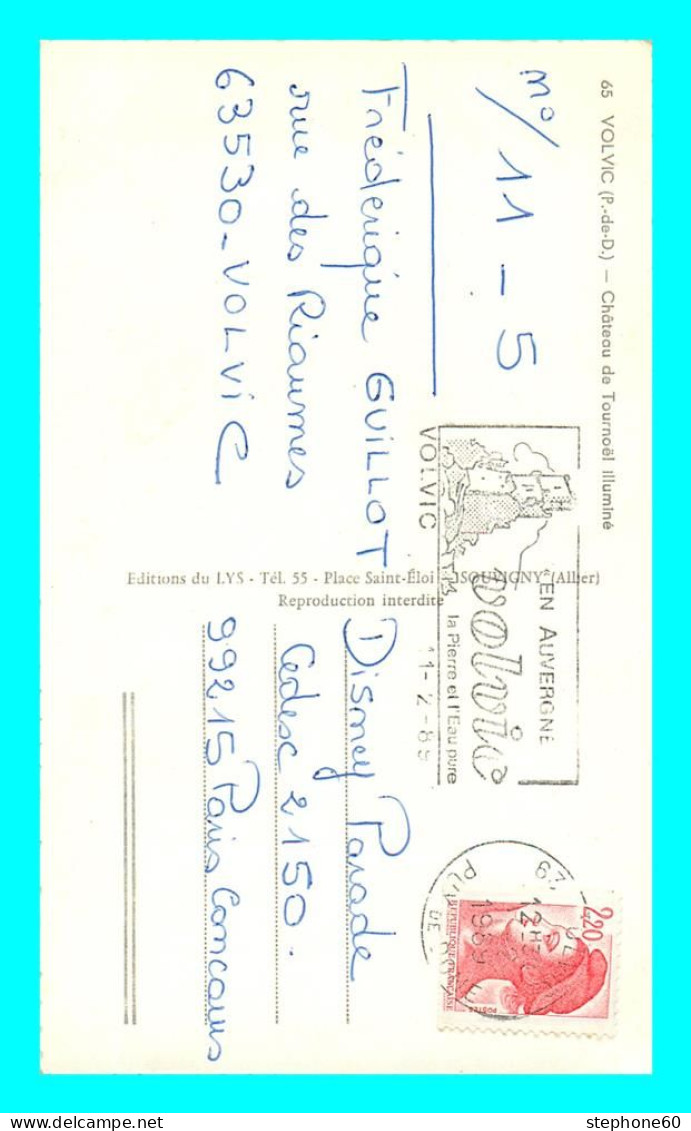 65 VOLVIC (P.-de-D.) — Château de Tournoël illuminé
n°/11 - 5
Frédérique GUILLOT
rue des Riaumes
63530 - VOLVIC
Editions du LYS - Tél. 55 - Place Saint-Éloi - SOUVIGNY (Allier)
Reproduction interdite
"EN AUVERGNE
volvic
la Pierre et l'Eau pure
VOLVIC
11-2-89
12H
12-2
1989
2,20
REPUBLIQUE FRANÇAISE
POSTES
Disney Parade
Cedesc 2150.
99215 Paris Concours
stephone60